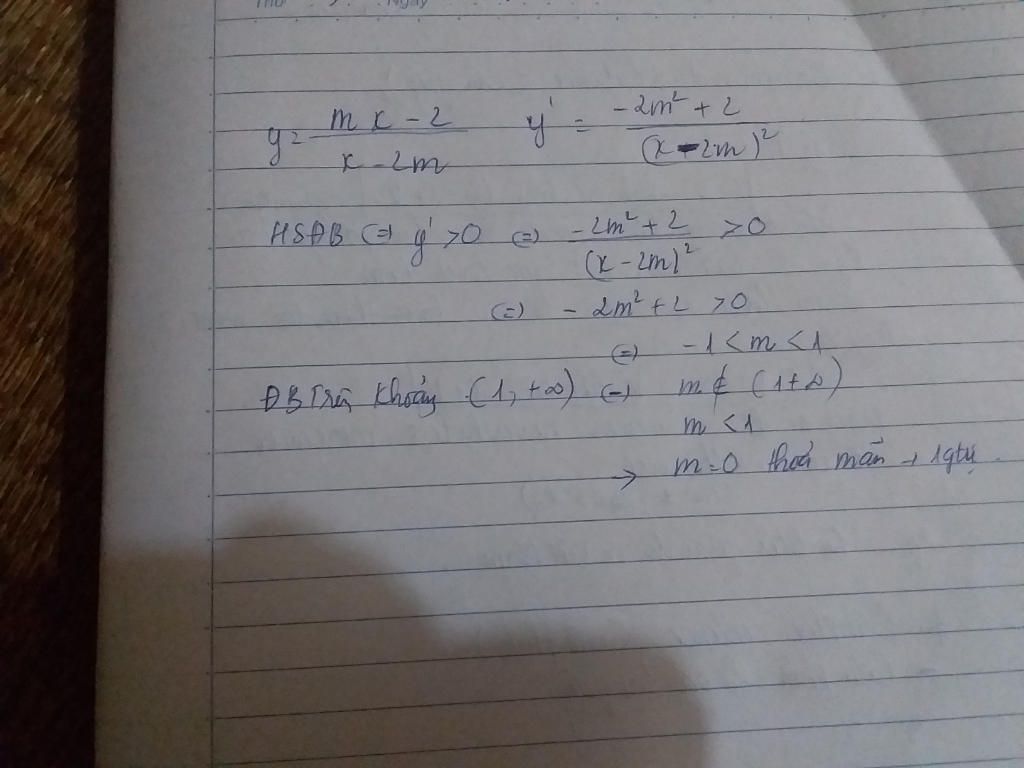 Thứ Ngày
y = \frac{mx - 2}{x - 2m} y' = \frac{-2m^2 + 2}{(x - 2m)^2}
HSĐB (=) y' > 0 (=) \frac{-2m^2 + 2}{(x - 2m)^2} > 0
(=) - 2m^2 + 2 > 0
(=) -1 < m < 1
ĐB Trên khoảng (1, +∞) (=) m ∉ (1+∞)
m < 1
→ m = 0 thoả mãn → 1gtrị